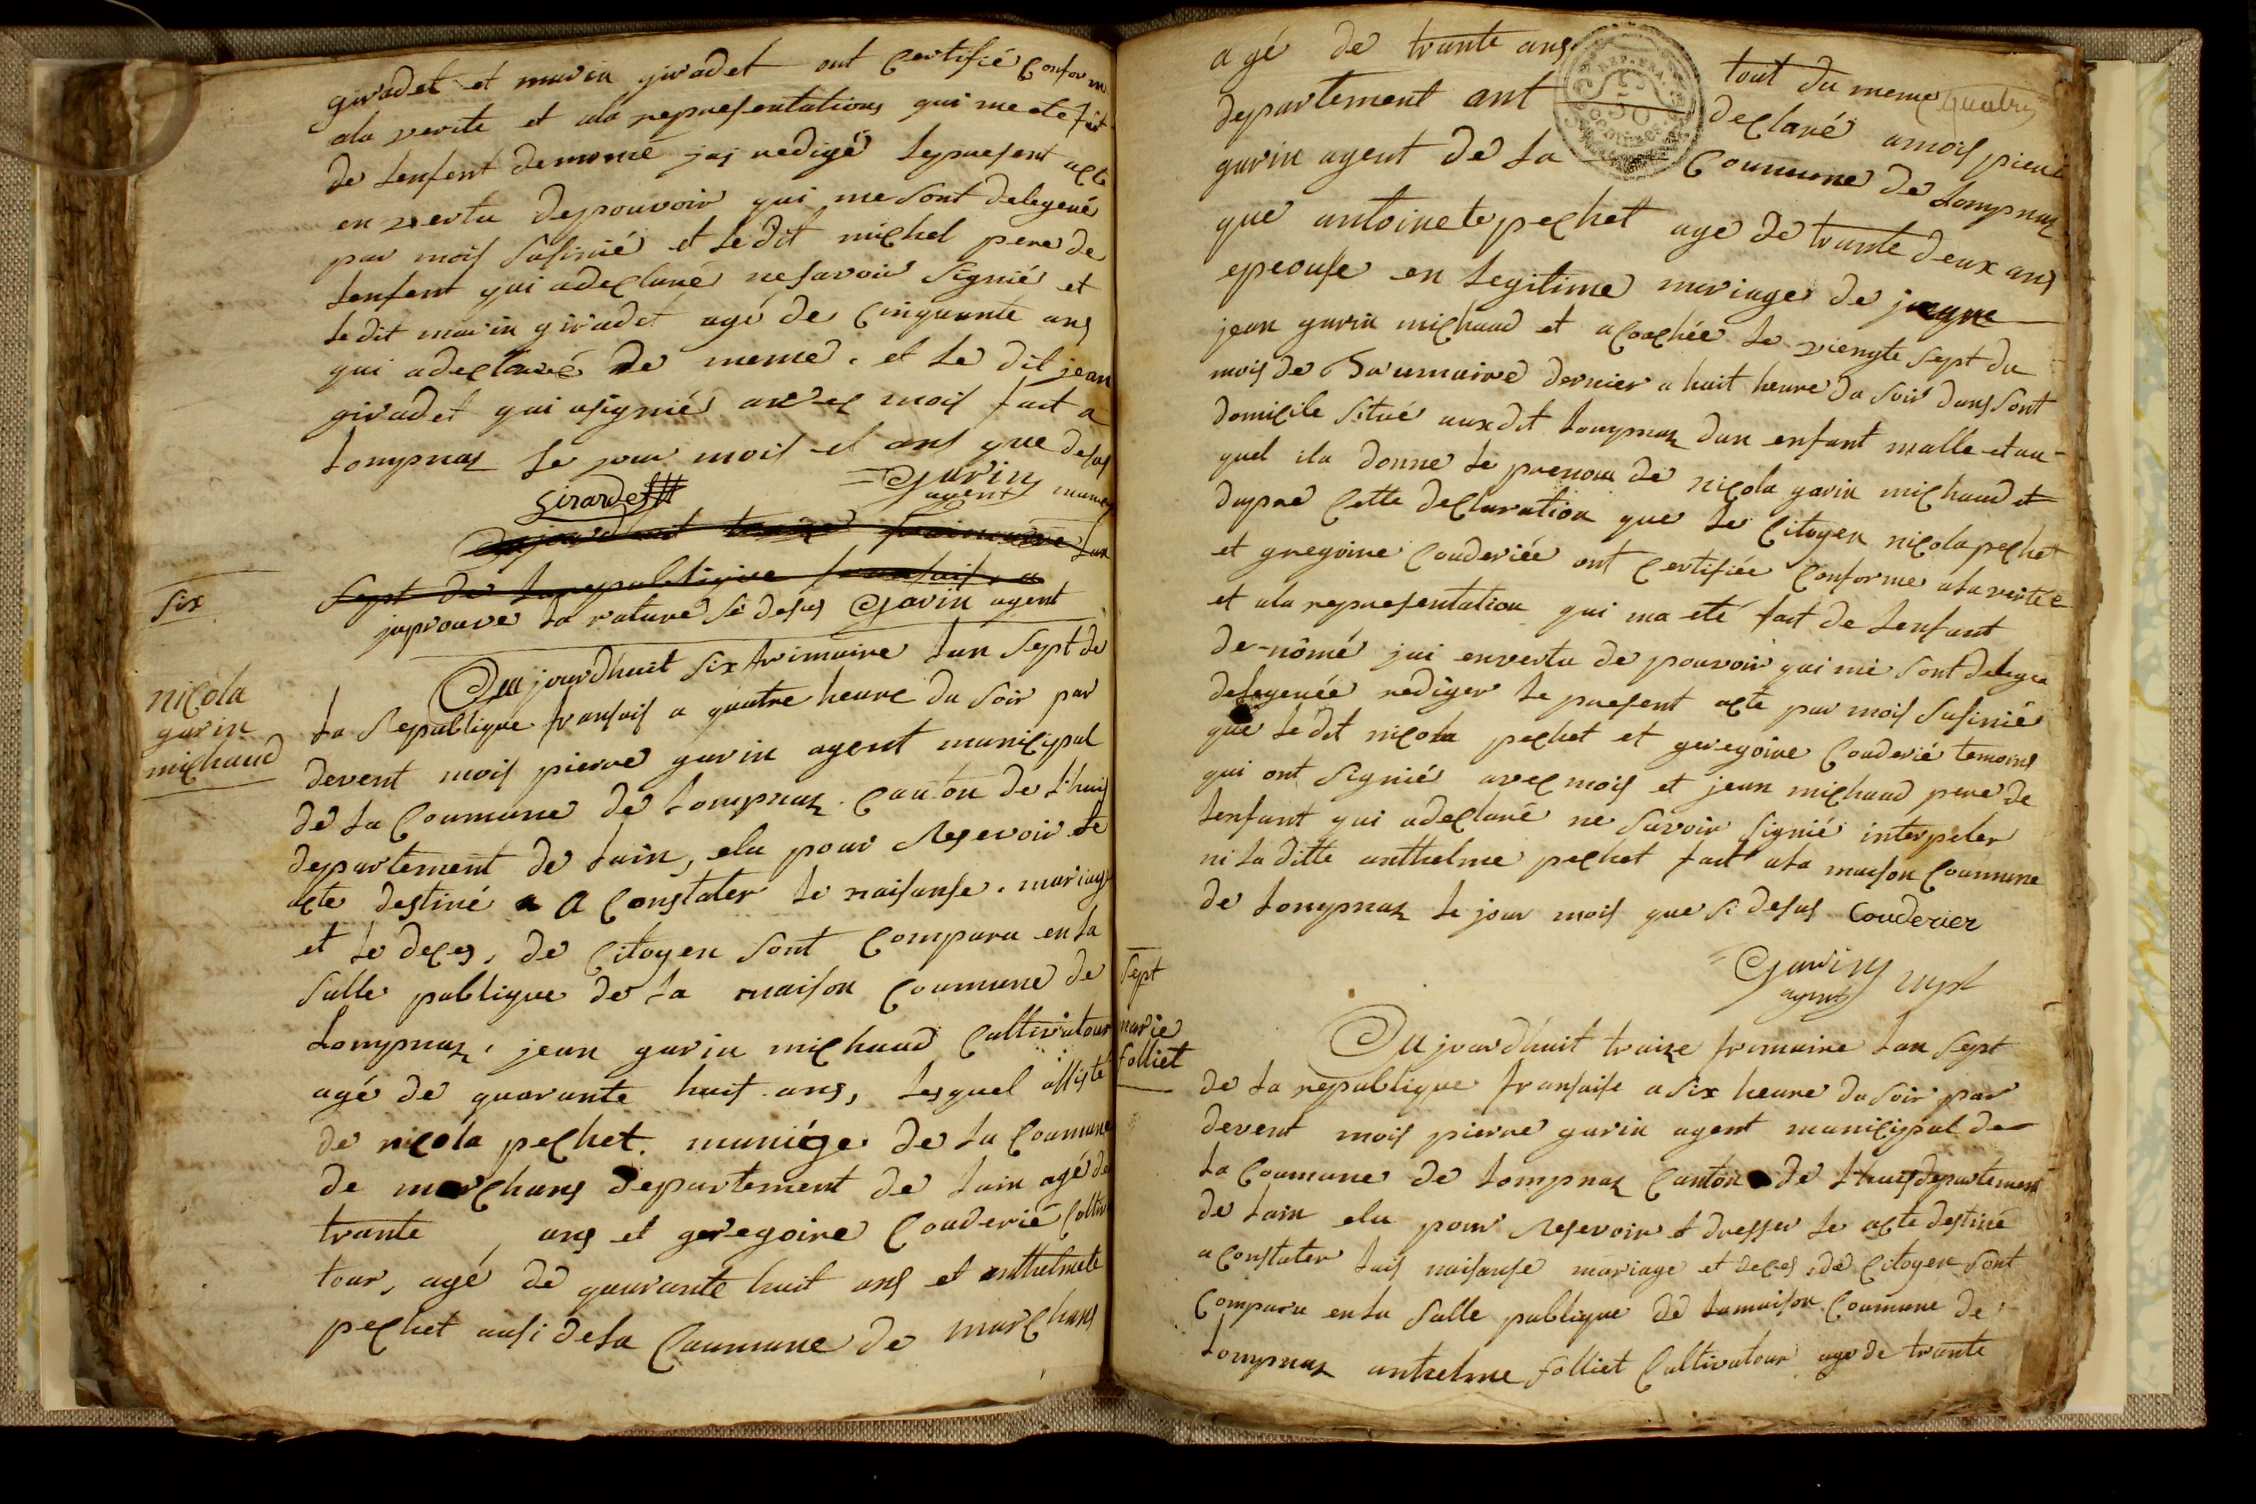 giradet et marin giradet ont Certifié Conform
ala verite et ala representations qui me ete fait
de Lenfent denomé jaj redigé Le present acte
en vertu de pouvoir qui me sont delegené
par mois Sasinié et Le dit michel pere de
Lenfent qui a declaré ne savoir Signié et
Le dit marin giradet agé de Cinquante ans
qui a declaré de meme. et Le dit jean
giradet qui a signié avec mois fait a
Lompnaz Le jour mois et ans que desus
Girardet Garin
agent
Aujourdhuit fri maire Lan
Sept de La republique fransais a
japrouve La rature si desus Garin agent
Six
nicola
garin
michaud
Au jourdhuit Six frimaire Lan Sept de
La Republique fransais a quatre heure du Soir par
devent mois pierre garin agent municipal
de La Coumune de Lompnaz Canton de Lhuis
departement de Lain, elu pour Resevoir Le
acte destiné a Constater Le naisanse. mariage
et Le deces, de Citoyen Sont Comparu en La
Salle publique de La maison Coumune de
Lompnaz, jean garin michaud Cultivatour
agé de quarante huit ans, Lesquel assisté
de nicola pechet. de La Coumune
de marchans departement de Lain agé de
trante ans et geregoire Couderié Coltiv
tour, agé de quarante huit ans et
pechet ausi de La Coumune de marchans
agé de trante ans tout du meme
quatre
departement ont declaré a mois pierre
garin agent de La Coumune de Lompnaz
que antoinete pechet age de trante deux ans
epeouse en Legitime mariage de
jean garin michaud et acouchée Le viengte Sept du
mois de Brumaire dernier a huit heure du Soir dans Sont
domicile Situé aux dit Lompnaz dun enfant malle et au
quel ila donne Le prenom de nicola garin michaud et
dapre Cette declaration que Le Citoyen nicola pechet
et gregoire Couderiée ont Certifiée Conforme ala veritée
et ala representation qui ma eté fait de Lenfant
de-nômé jai envertu de pouvoir qui me sont delegu
delegenée rediger Le present acte par mois Sasinié
que Le dit nicola pechet et geregoire Couderié temoins
qui ont Signié avec mois et jean michaud pere de
Lenfant qui a declaré ne Savoir Signié interpeler
ni La ditte anthelme pechet fait ala maison Coumune
de Lompnaz Le jour mois que si desus Couderier
Garin
agent
Sept
marie
folliet
Au jourdhuit traize frimaire Lan Sept
de La republique fransaise a Six heure du Soir par
devent mois pierre garin agent municipal de
La Coumune de Lompnaz Canton de Lhuis departement
de Lain elu pour Resevoir & dresser Le acte destiné
a Constater Lais naisanse mariage et deces de Citoyen Sont
Comparu en La Salle publique de La maison Coumune de
Lompnaz anthelme folliet Cultivatour age de trante